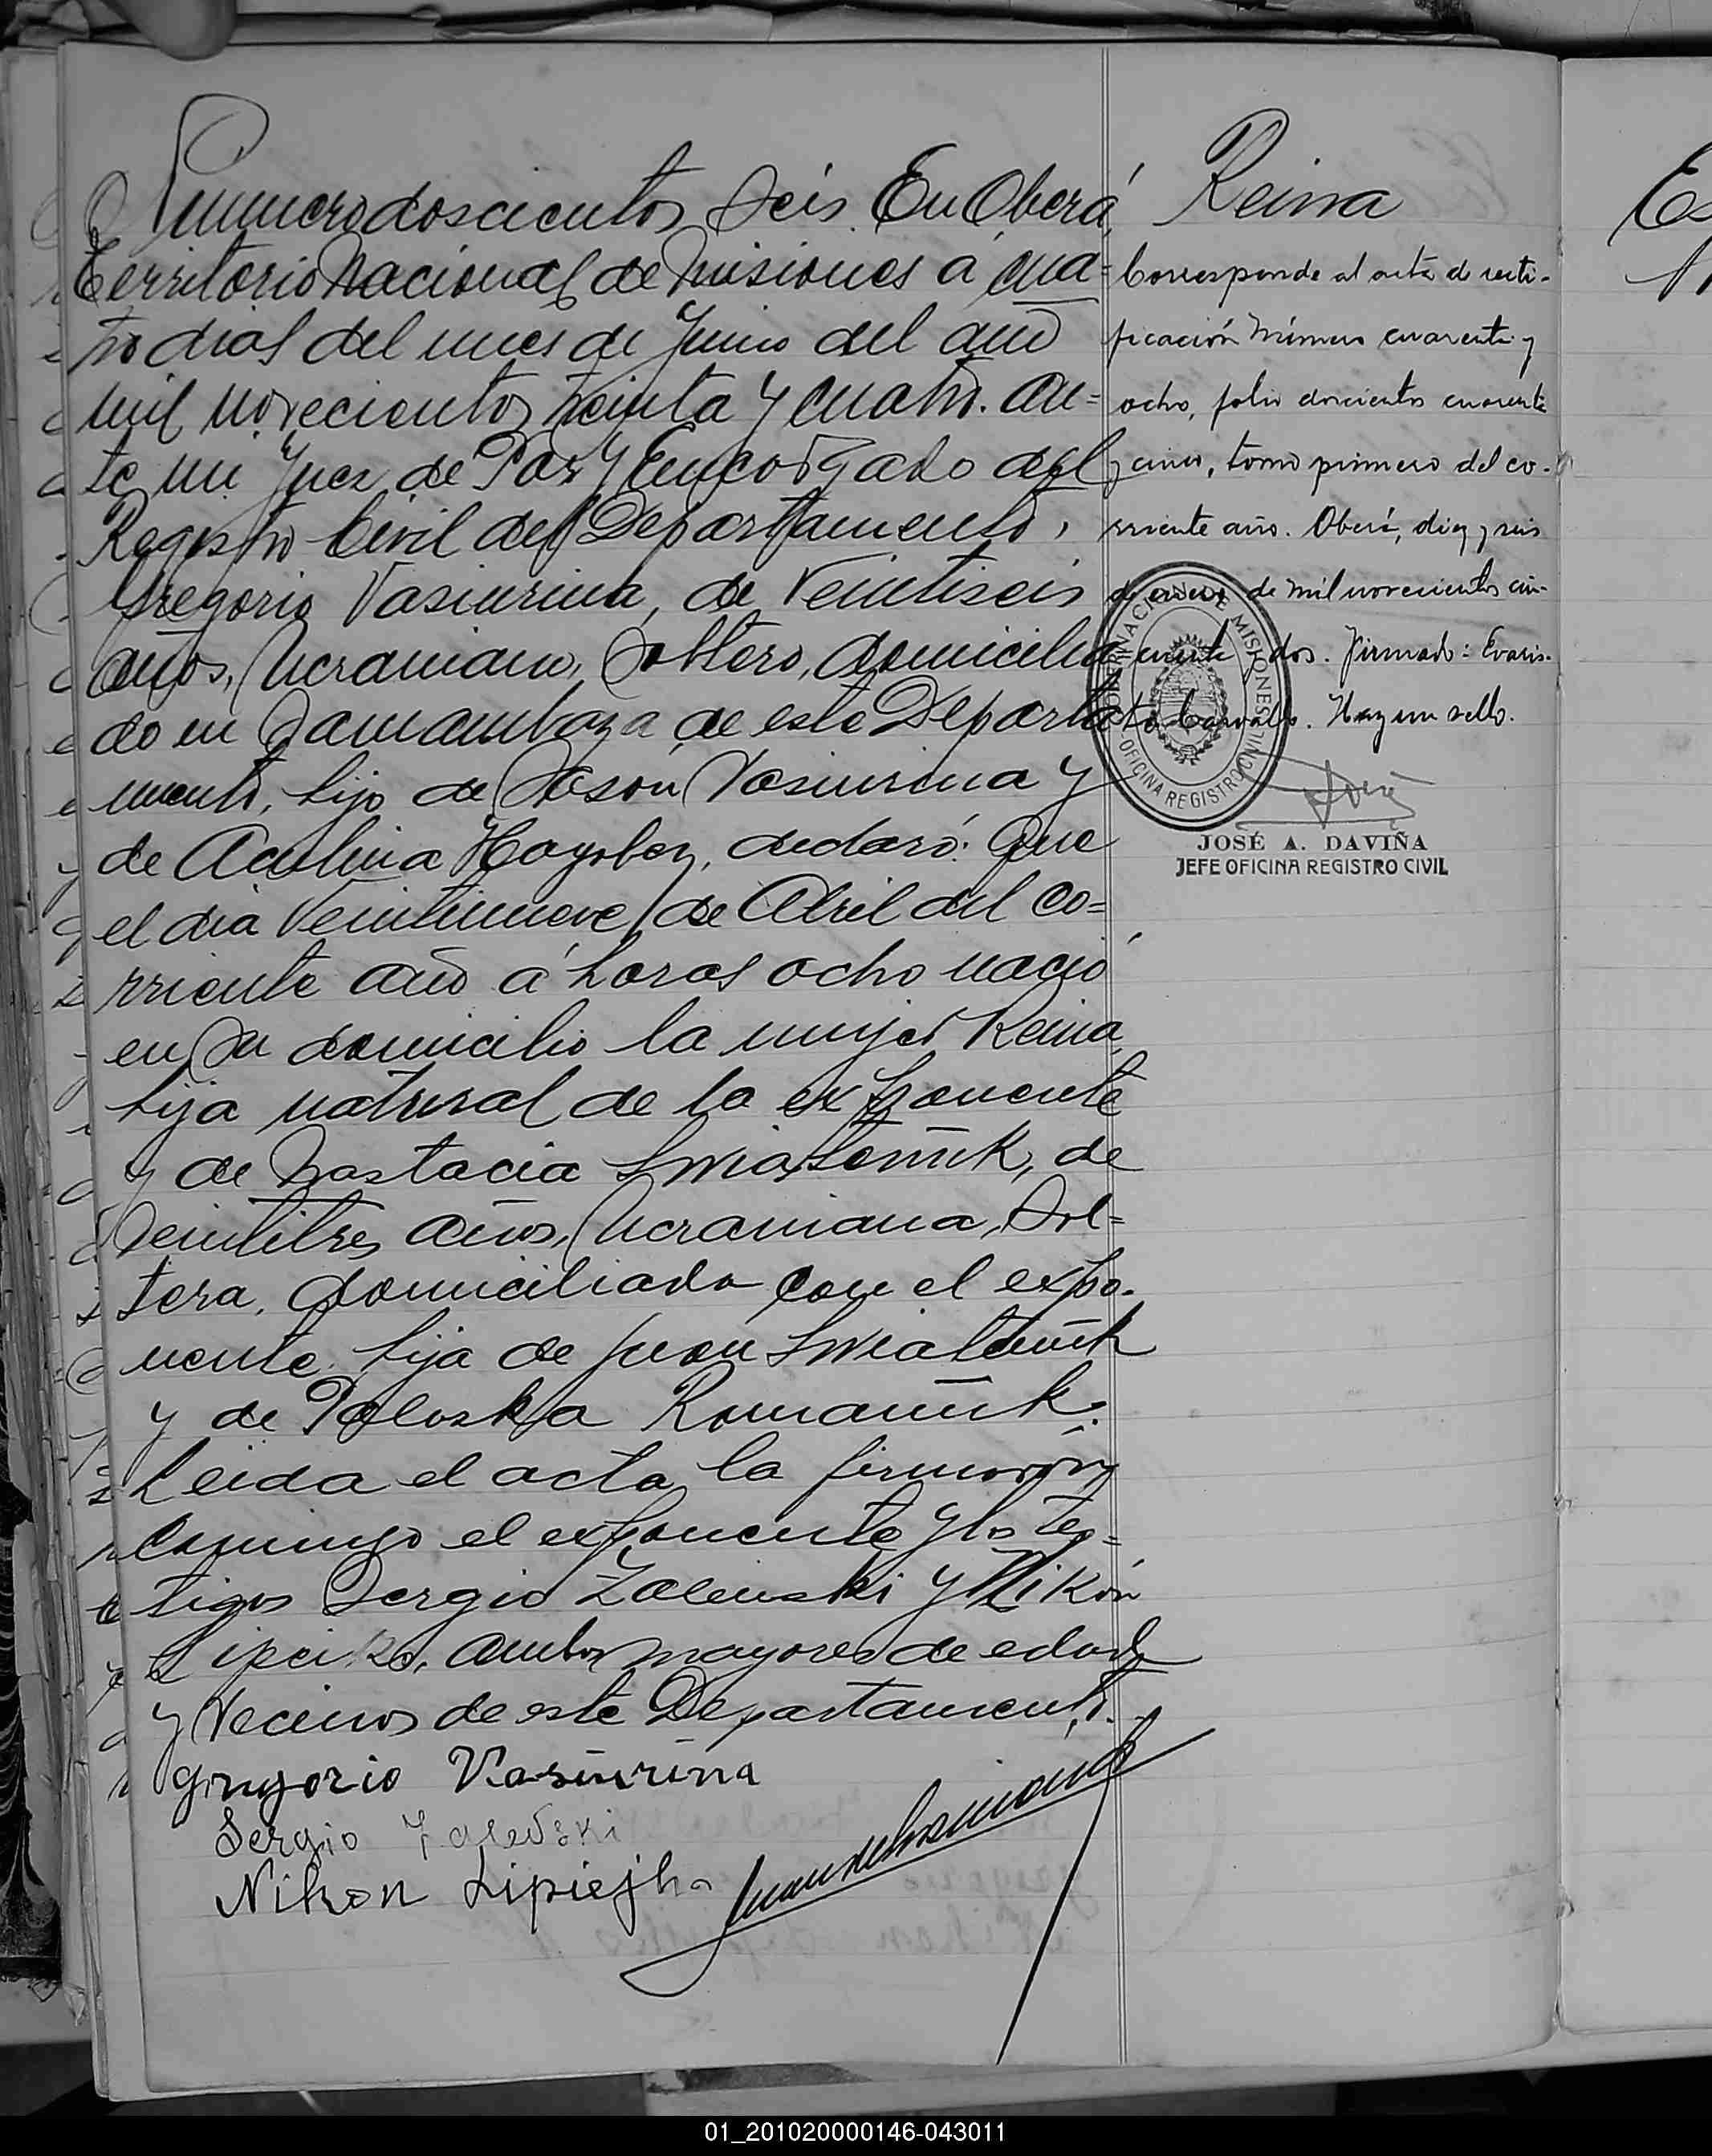 Numero doscientos seis. En Oberá,
Territorio Nacional de Misiones a cua=
tro dias del mes de Junio del año
mil novecientos treinta y cuatro. an=
te mi Juez de Paz y Encargado del
Registro Civil del Departamento,
Gregorio Vasiurina, de veintiseis
años, Ucraniano, Soltero, domicilia
do en Samambaya de este Departa
mento, hijo de Vasiurina y
de Aculina declaró: Que
el dia veintinueve de Abril del co=
rriente año á horas ocho nació
en su domicilio la mujer Reina,
hija natural de la exponente
y de Nastacia Swiateniuk, de
veintitres años, Ucraniana, Sol=
tera, domiciliada con el expo-
nente, hija de Juan Swiateniuk
y de Poloska Romaniuk.
Leida el acta, la firmaron
conmigo el exponente y los tes=
tigos Sergio Zaleuski y Nikón
ambos mayores de edad
y vecinos de este Departamento.
Gregorio Vasiurina
Sergio Zalevski
Nikon Lipiejko
Reina
Corresponde al acta de recti-
ficación Número cuarenta y
ocho, folio doscientos cuarenta
y cinco, tomo primero del co-
rriente año. Oberá, diez y seis
de enero de mil novecientos cin-
cuenta y dos. Firmado: Evaris-
to Carvallo. Hay un sello.
GOBERNACION DE MISIONES
OFICINA REGISTRO CIVIL
JOSÉ A. DAVIÑA
JEFE OFICINA REGISTRO CIVIL
Es
01_201020000146-043011